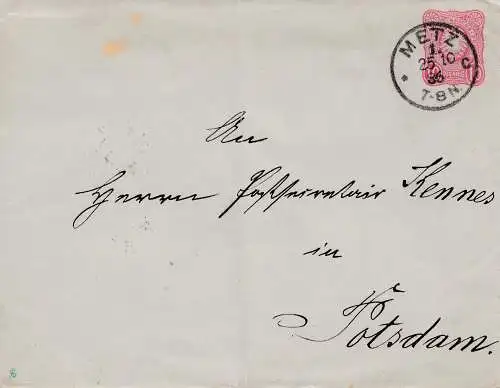 METZ
1.
25 10
86
C
* 7-8 N.
An
Herrn Postsecretair Kennes
in
Potsdam.